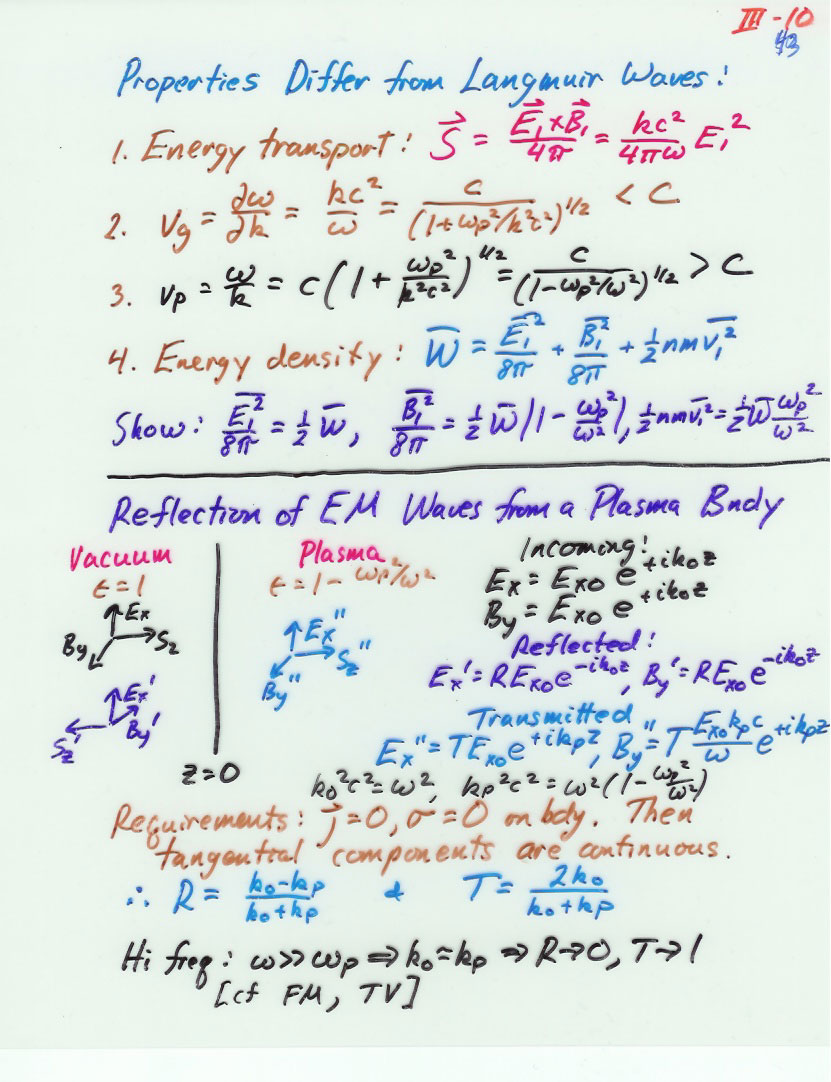 III-10
43
Properties Differ from Langmuir Waves:
1. Energy transport: S⃗ = E⃗₁×B⃗₁/4π = kc²/4πω E₁²
2. Vg = ∂ω/∂k = kc²/ω = c/(1+ωp²/k²c²)^1/2 < c
3. Vp = ω/k = c(1 + ωp²/k²c²)^1/2 = c/(1-ωp²/ω²)^1/2 > c
4. Energy density: W̅ = E̅₁²/8π + B̅₁²/8π + ½nm v̅₁²
Show: E̅₁²/8π = ½ W̅, B̅₁²/8π = ½ W̅(1 - ωp²/ω²), ½nm v̅₁² = ½W̅ ωp²/ω²
Reflection of EM Waves from a Plasma Bndy
Vacuum
ϵ=1
Ex
By
Sz
Ex'
By'
Sz'
z=0
Plasma
ϵ=1-ωp²/ω²
Ex"
Sz"
By"
Incoming:
Ex = Exo e^+ikoz
By = Exo e^+ikoz
Reflected:
Ex' = RExo e^-ikoz, By' = RExo e^-ikoz
Transmitted
Ex" = TExo e^+ikpz, By" = T Exo kpc/ω e^+ikpz
ko²c² = ω², kp²c² = ω²(1-ωp²/ω²)
Requirements: j⃗=0, σ=0 on bdy. Then
tangential components are continuous.
∴ R = ko-kp/ko+kp & T = 2ko/ko+kp
Hi freq: ω>>ωp ⇒ ko≈kp ⇒ R→0, T→1
[cf FM, TV]